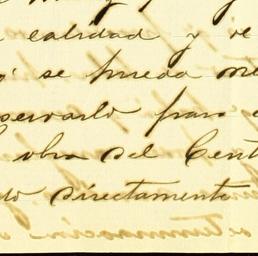 calidad y ve
se pueda me
servarlo para
obra del Cent
do directamente